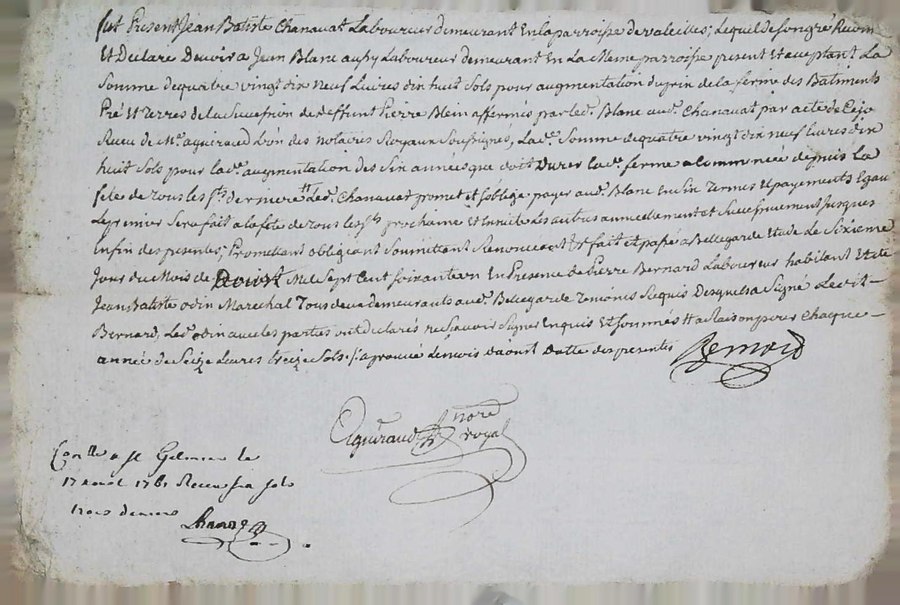 fut Present Jean Batiste Chanavat Laboureur demeurant En la parroisse de valeilles; Lequel de son gré Reconn
Et Declare Devoir a Jean Blanc aussy Laboureur demeurant En La Meme parroisse present Et acceptant La
Somme de quatre vingt dix neuf Livres dix huit Sols pour augmentation du prix de la ferme des Batiments
Pré Et Terres de la Succession de deffunt Pierre Blein affermés par led. Blanc aud. Chanavat par acte de Cejo
Recu de Me. aguiraud L'un des notaires Royaux Soussignés, Lad. Somme de quatre vingt dix neuf livres dix
huit Sols pour lad. augmentation des Six années que doit Durer lad. ferme a Commencée depuis La
fete de tous les Sts. derniere Led. Chanavat promet et soblige payer aud. Blanc En Six Termes Et payements Egau
Le premier Sera fait a la fete de tous les Sts prochaine Et Ensuite Les autres annuellement et Successivement jusques
Enfin des presentes; Promettant obligeant Soumittant Renonceant fait et passé a Bellegarde Etude Le Sixieme
Jour du Mois de Aoust Mil Sept Cent soixante un En Presence de Pierre Bernard Laboureur habitant
Jean Batiste odin Marechal Tous deux demeurants aud. Bellegarde Temoins Requis Desquels a Signé Led.
Bernard, Led. odin avec les parties ont declarés ne sçavoir Signer Enquis Et Sommés a Raison pour Chaque
année de Seize Livres treize Sols. approuvé Le mois daoust Datte des presentes Bernard
Aguiraud nore royal
Conlle a st Galmier le
17 aout 1761 Receu six sols
trois deniers